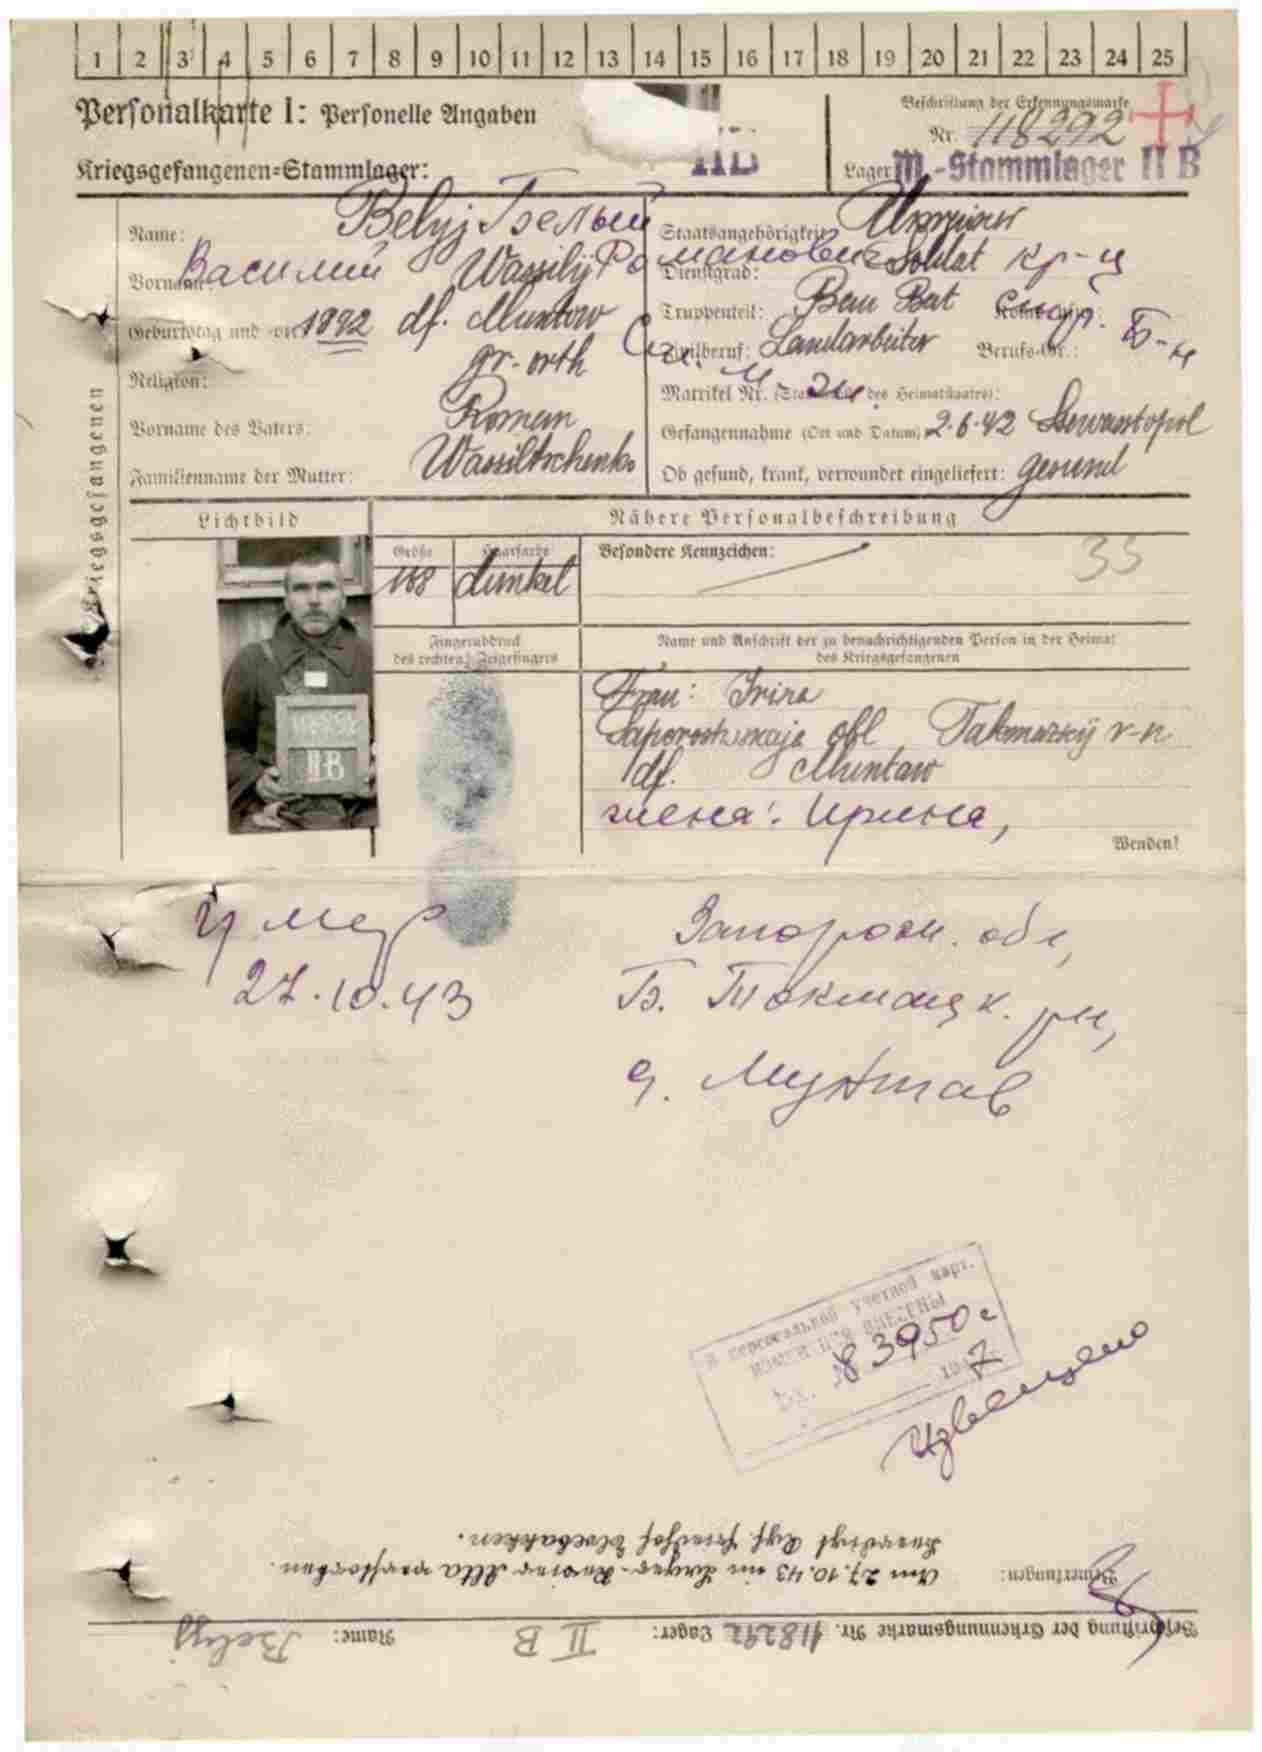 1 2 3 4 5 6 7 8 9 10 11 12 13 14 15 16 17 18 19 20 21 22 23 24 25
Personalkarte I: Personelle Angaben
Kriegsgefangenen=Stammlager: II B
Beschriftung der Erkennungsmarke
Nr. 118292
Lager M.-Stammlager II B
Kriegsgefangenen
Name: Belyj Белый
Vorname: Василий Wassilij Романович
Geburtstag und -ort 1892 df. Muntow
Religion: gr-orth
Vorname des Vaters: Roman
Familienname der Mutter: Wassiltschenko
Staatsangehörigkeit
Dienstgrad: Soldat кр-ц
Truppenteil: Bau Bat
Zivilberuf: Landarbeiter Berufs-Gr.:
Matrikel Nr. (Stammrolle des Heimatstaates):
Gefangennahme (Ort und Datum) 2.6.42 Sewastopol
Ob gesund, krank, verwundet eingeliefert: gesund
Lichtbild
Nähere Personalbeschreibung
Größe 168
Haarfarbe dunkel
Besondere Kennzeichen:
33
Fingerabdruck
des rechten Zeigefingers
Name und Anschrift der zu benachrichtigenden Person in der Heimat
des Kriegsgefangenen
II B
Frau: Irina
Saporoshskaja obl Takmazkij r-n
df. Muntaw
жена: Ирина,
Wenden!
Умер
27.10.43
Запорож. обл,
Б. Токмацк. рн,
д. Мунтав
В персональной учетной карт.
изменения внесены
Вх. № 83950с
1947
Извещено
Bemerkungen: Am 27.10.43 im Lager-Revier Alta verstorben.
Beerdigt Friedhof Elvebakken.
Beschriftung der Erkennungsmarke Nr. 118292 Lager: II B Name: Belyj